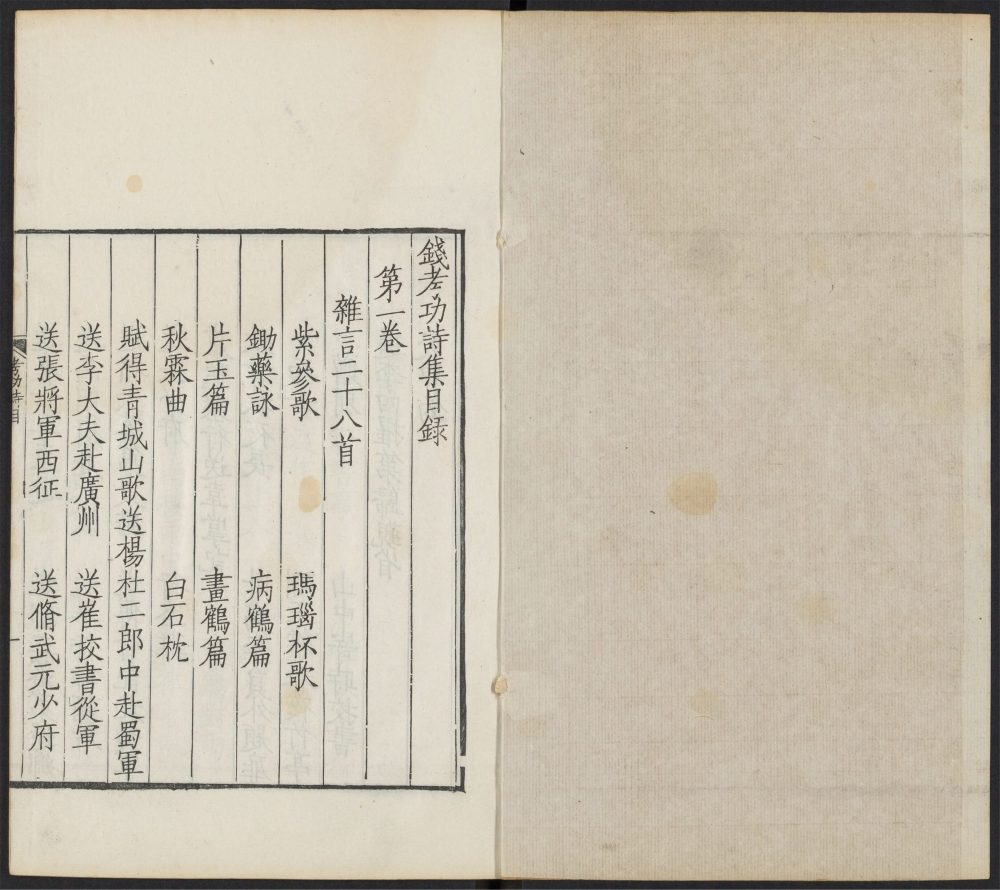 錢考功詩集目録
第一卷
雜言二十八首
紫參歌 瑪瑙杯歌
鋤藥詠 病鶴篇
片玉篇 畫鶴篇
秋霖曲 白石枕
賦得青城山歌送楊杜二郎中赴蜀軍
送李大夫赴廣州 送崔挍書從軍
送張將軍西征 送脩武元少府
考功詩目
一